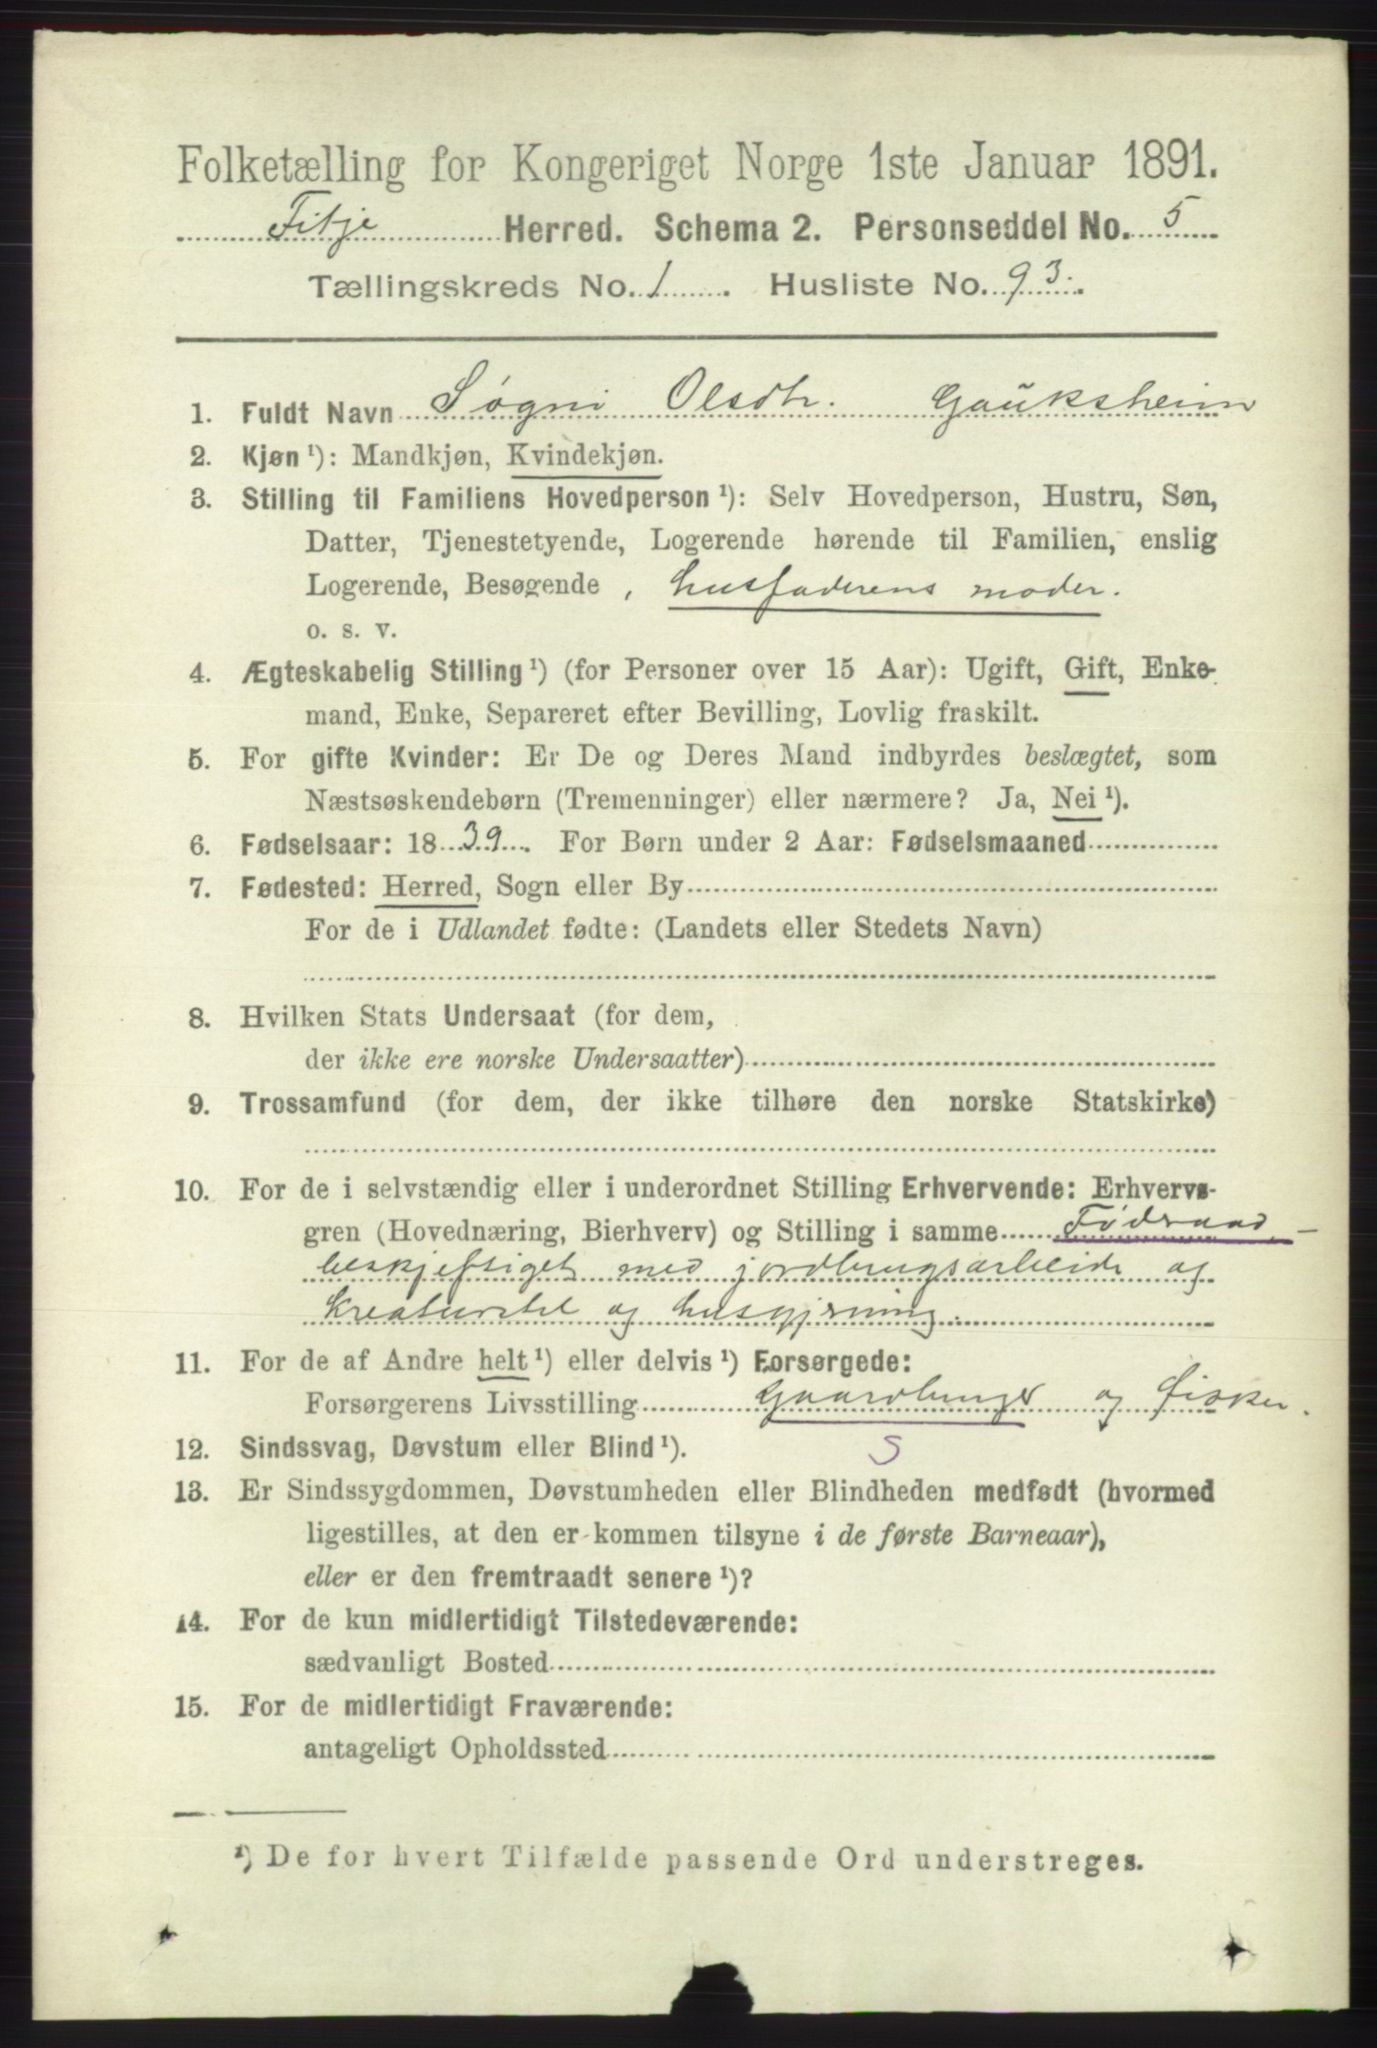 Folketælling for Kongeriget Norge 1ste Januar 1891.
Fitje Herred. Schema 2. Personseddel No. 5
Tællingskreds No. 1. Husliste No. 93.
1. Fuldt Navn Søgni Olsdtr. Gauksheim
2. Kjøn ¹): Mandkjøn, Kvindekjøn.
3. Stilling til Familiens Hovedperson ¹): Selv Hovedperson, Hustru, Søn,
Datter, Tjenestetyende, Logerende hørende til Familien, enslig
Logerende, Besøgende, husfaderens moder.
o. s. v.
4. Ægteskabelig Stilling ¹) (for Personer over 15 Aar): Ugift, Gift, Enke-
mand, Enke, Separeret efter Bevilling, Lovlig fraskilt.
5. For gifte Kvinder: Er De og Deres Mand indbyrdes beslægtet, som
Næstsøskendebørn (Tremenninger) eller nærmere? Ja, Nei ¹).
6. Fødselsaar: 1839. For Børn under 2 Aar: Fødselsmaaned
7. Fødested: Herred, Sogn eller By
For de i Udlandet fødte: (Landets eller Stedets Navn)
8. Hvilken Stats Undersaat (for dem,
der ikke ere norske Undersaatter)
9. Trossamfund (for dem, der ikke tilhøre den norske Statskirke)
10. For de i selvstændig eller i underordnet Stilling Erhvervende: Erhvervs-
gren (Hovednæring, Bierhverv) og Stilling i samme Fødsraad, –
beskjeftiget med jordbrugsarbeide og
kreaturstel og husgjerning.
11. For de af Andre helt ¹) eller delvis ¹) Forsørgede:
Forsørgerens Livsstilling Gaardbruger og fisker.
12. Sindssvag, Døvstum eller Blind ¹). S
13. Er Sindssygdommen, Døvstumheden eller Blindheden medfødt (hvormed
ligestilles, at den er kommen tilsyne i de første Barneaar),
eller er den fremtraadt senere ¹)?
14. For de kun midlertidigt Tilstedeværende:
sædvanligt Bosted
15. For de midlertidigt Fraværende:
antageligt Opholdssted
¹) De for hvert Tilfælde passende Ord understreges.